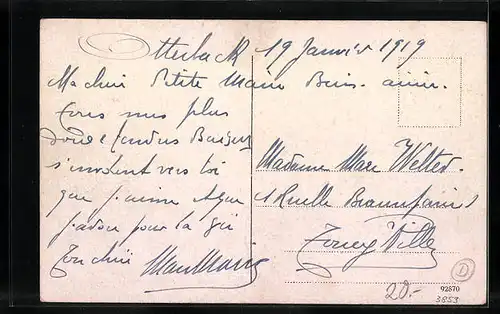 Otterbach 19 Janvier 1919
Ma chère Petite Marie Bien aimée
Tous mes plus
doux et tendres Baisers
s'envolent vers toi
que j'aime et que
j'adore pour la vie
Ton chéri
Madame Marc Welter
1 Ruelle Beaurepaire
Toul Ville
D
20.-
92870
3853